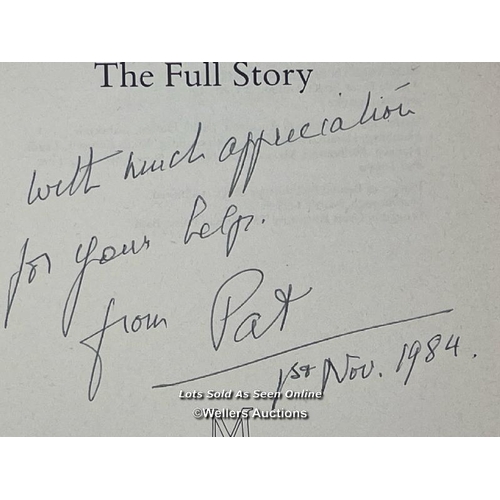 The Full Story
With much appreciation
for your help.
from Pat
1st Nov. 1984.
Lots Sold As Seen Online
©Wellers Auctions
M